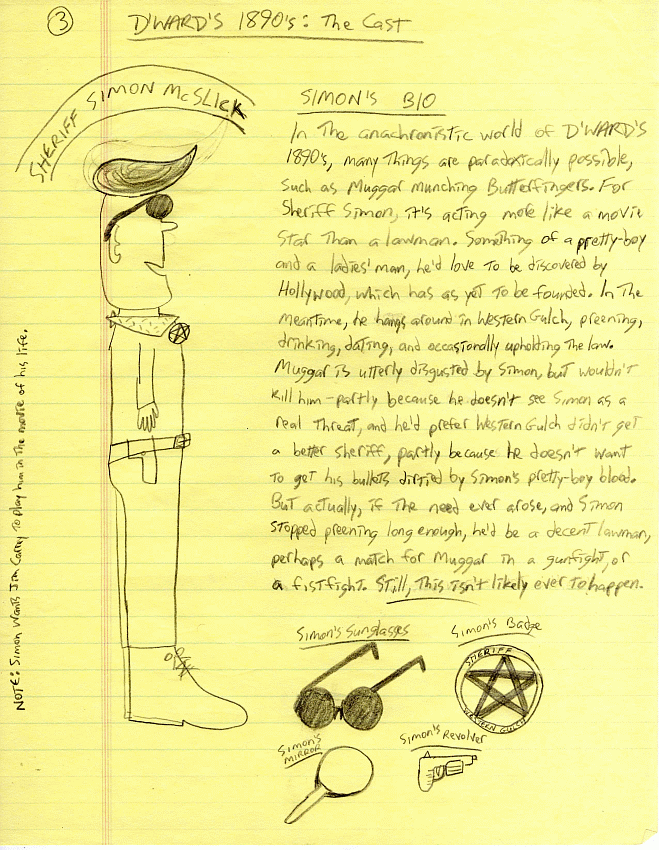 3
D'WARD'S 1890's: The Cast
SHERIFF SIMON McSLICK
SIMON'S BIO
In The anachronistic world of D'WARD'S
1890's, many Things are paradoxically possible,
such as Muggar munching Butterfingers. For
Sheriff Simon, it's acting more like a movie
star Than a lawman. Something of a pretty-boy
and a ladies' man, he'd love to be discovered by
Hollywood, which has as yet to be founded. In The
meantime, he hangs around in Western Gulch, preening,
drinking, dating, and occasionally upholding the law.
Muggar is utterly disgusted by Simon, but wouldn't
kill him - partly because he doesn't see Simon as a
real Threat, and he'd prefer Western Gulch didn't get
a better sheriff, partly because he doesn't want
To get his bullets dirtied by Simon's pretty-boy blood.
But actually, if The need ever arose, and Simon
stopped preening long enough, he'd be a decent lawman,
perhaps a match for Muggar in a gunfight, or
a fistfight. Still, This isn't likely ever To happen.
NOTE: Simon Wants Jim Carrey To play him in The movie of his life.
Simon's Sunglasses
Simon's Badge
SHERIFF
WESTERN GULCH
Simon's
MIRROR
Simon's Revolver